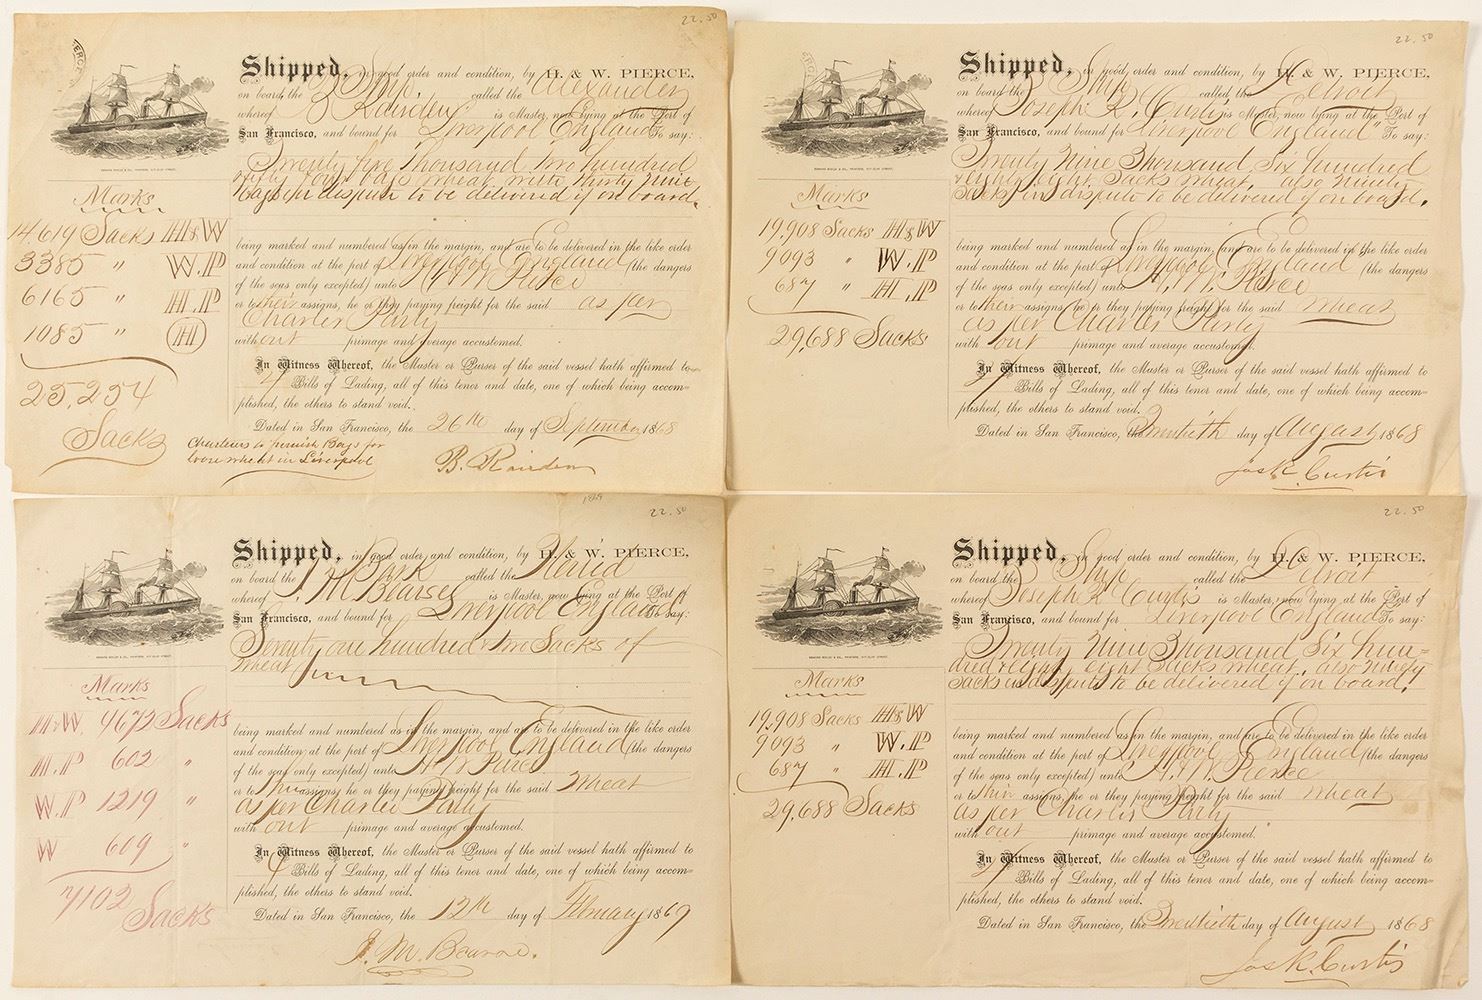 22.50
Shipped, in good order and condition, by H. & W. PIERCE,
on board the Ship, called the Alexander
whereof B Rainden is Master, now lying at the Port of
San Francisco, and bound for Liverpool England To say:
Twenty five Thousand two hundred
fifty four bags wheat with thirty nine
bags in dispute to be delivered if on board.
Marks
14,619 Sacks H&W
3385 " W.P
6165 " H.P
1085 " H
25,254
Sacks
being marked and numbered as in the margin, and are to be delivered in the like order
and condition at the port of Liverpool England (the dangers
of the seas only excepted) unto H & W Pierce
or to their assigns, he or they paying freight for the said as per
Charter Party
with out primage and average accustomed.
In Witness Whereof, the Master or Purser of the said vessel hath affirmed to
4 Bills of Lading, all of this tenor and date, one of which being accom-
plished, the others to stand void.
Dated in San Francisco, the 26th day of September 1868
Charterers to furnish Bags for
loose wheat in Liverpool
B. Rainden
22.50
Shipped, in good order and condition, by H. & W. PIERCE,
on board the Ship called the Detroit
whereof Joseph R. Curtis is Master, now lying at the Port of
San Francisco, and bound for Liverpool England To say:
Twenty Nine Thousand, Six hundred
& eighty eight Sacks wheat, also ninety
Sacks in dispute to be delivered if on board.
Marks
19,908 Sacks H&W
9093 " W.P
687 " H.P
29,688 Sacks
being marked and numbered as in the margin, and are to be delivered in the like order
and condition at the port of Liverpool England (the dangers
of the seas only excepted) unto H. & W. Pierce
or to their assigns, he or they paying freight for the said wheat
as per Charter Party
with out primage and average accustomed.
In Witness Whereof, the Master or Purser of the said vessel hath affirmed to
Bills of Lading, all of this tenor and date, one of which being accom-
plished, the others to stand void.
Dated in San Francisco, the Twentieth day of August 1868
Jos R. Curtis
1869
22.50
Shipped, in good order and condition, by H. & W. PIERCE,
on board the Bark called the
whereof J. M Bearse is Master, now lying at the Port of
San Francisco, and bound for Liverpool England To say:
Seventy one hundred & two Sacks of
wheat
Marks
H&W. 4672 Sacks
H.P 602 "
W.P 1219 "
W 609 "
7102 Sacks
being marked and numbered as in the margin, and are to be delivered in the like order
and condition at the port of Liverpool England (the dangers
of the seas only excepted) unto H & W Pierce
or to assigns, he or they paying freight for the said Wheat
as per Charter Party
with out primage and average accustomed.
In Witness Whereof, the Master or Purser of the said vessel hath affirmed to
4 Bills of Lading, all of this tenor and date, one of which being accom-
plished, the others to stand void.
Dated in San Francisco, the 12th day of February 1869
J. M. Bearse.
22.50
Shipped, in good order and condition, by H. & W. PIERCE,
on board the Ship called the Detroit
whereof Joseph R Curtis is Master, now lying at the Port of
San Francisco, and bound for Liverpool England To say:
Twenty Nine Thousand Six hun-
dred & eighty eight Sacks wheat, also ninety
Sacks in dispute to be delivered if on board.
Marks
19,908 Sacks H&W
9093 " W.P
687 " H.P
29,688 Sacks
being marked and numbered as in the margin, and are to be delivered in the like order
and condition at the port of Liverpool England (the dangers
of the seas only excepted) unto H. & W. Pierce
or to their assigns, he or they paying freight for the said wheat
as per Charter Party
with out primage and average accustomed.
In Witness Whereof, the Master or Purser of the said vessel hath affirmed to
Bills of Lading, all of this tenor and date, one of which being accom-
plished, the others to stand void.
Dated in San Francisco, the Twentieth day of August 1868
Jos R. Curtis